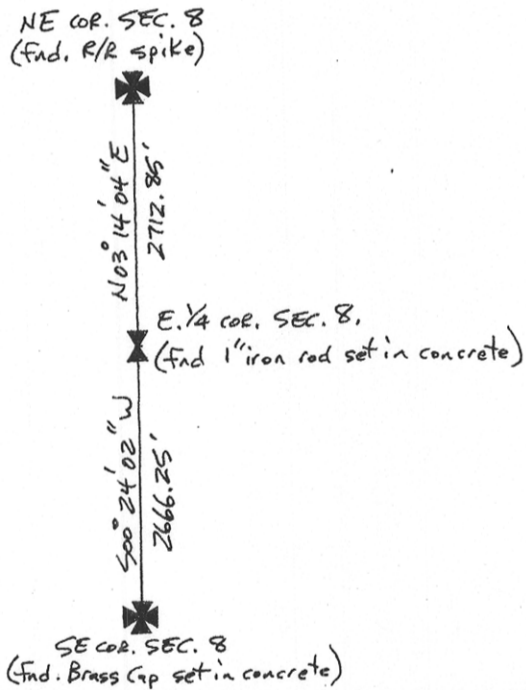 NE COR. SEC. 8
(fnd. R/R spike)
N03° 14' 04" E
2712.85'
E. 1/4 COR. SEC. 8.
(fnd 1" iron rod set in concrete)
S00° 24' 02" W
2666.25'
SE COR. SEC. 8
(fnd. Brass Cap set in concrete)